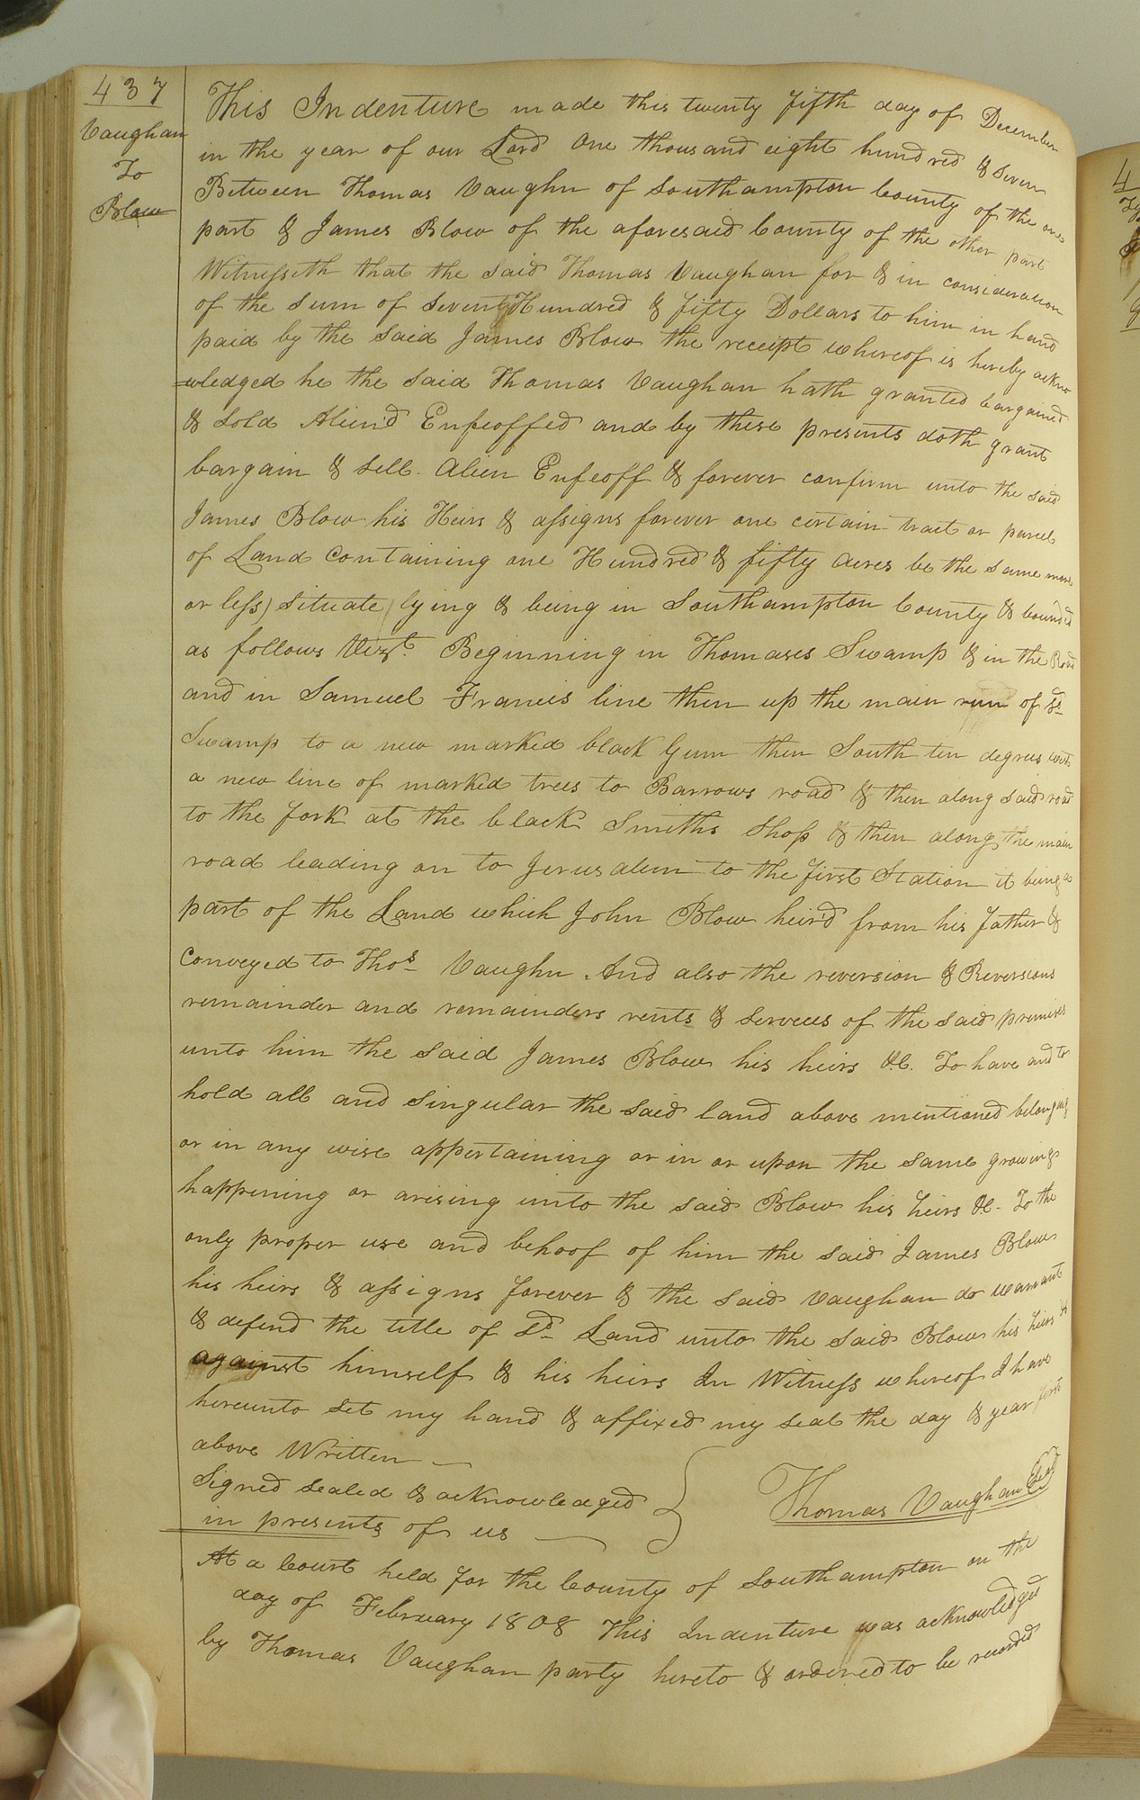 437
Vaughan
To
Blow
This Indenture made this twenty fifth day of December
in the year of our Lord One thousand eight hundred & Seven
Between Thomas Vaughn of Southampton County of the one
part & James Blow of the aforesaid County of the other part
Witnesseth that the said Thomas Vaughan for & in consideration
of the sum of Seven Hundred & fifty Dollars to him in hand
paid by the said James Blow the receipt whereof is hereby ackno
=wledged he the said Thomas Vaughan hath granted bargained
& sold Alien'd Enfeoffed and by these presents doth grant
bargain & sell Alien Enfeoff & forever confirm unto the said
James Blow his Heirs & assigns forever one certain tract or parcel
of Land Containing one Hundred & fifty Acres be the same more
or less) situate lying & being in Southampton County & bounded
as follows Vizt. Beginning in Thomases Swamp & in the Road
and in Samuel Francis line then up the main run of sd
Swamp to a new marked black Gum then South ten degrees west
a new line of marked trees to Barrows road & then along said road
to the fork at the black Smiths Shop & then along the main
road leading on to Jerusalem to the first Station it being a
part of the Land which John Blow heir'd from his father &
Conveyed to Thos Vaughn And also the reversion & Reversions
remainder and remainders rents & servces of the said premises
unto him the said James Blow his heirs &c. To have and to
hold all and singular the said land above mentioned belonging
or in any wise appertaining or in or upon the same growing
happening or arising unto the said Blow his heirs &c- To the
only proper use and behoof of him the said James Blow
his heirs & assigns forever & the said Vaughan do warrant
& defend the title of sd Land unto the said Blow his heirs &c
against himself & his heirs In Witness whereof I have
hereunto set my hand & affixed my seal the day & year first
above Written
Signed sealed & acknowledged
in presents of us
Thomas Vaughan Seal
At a Court held for the County of Southampton on the
day of February 1808 This Indenture was acknowledged
by Thomas Vaughan party hereto & ordered to be recorded